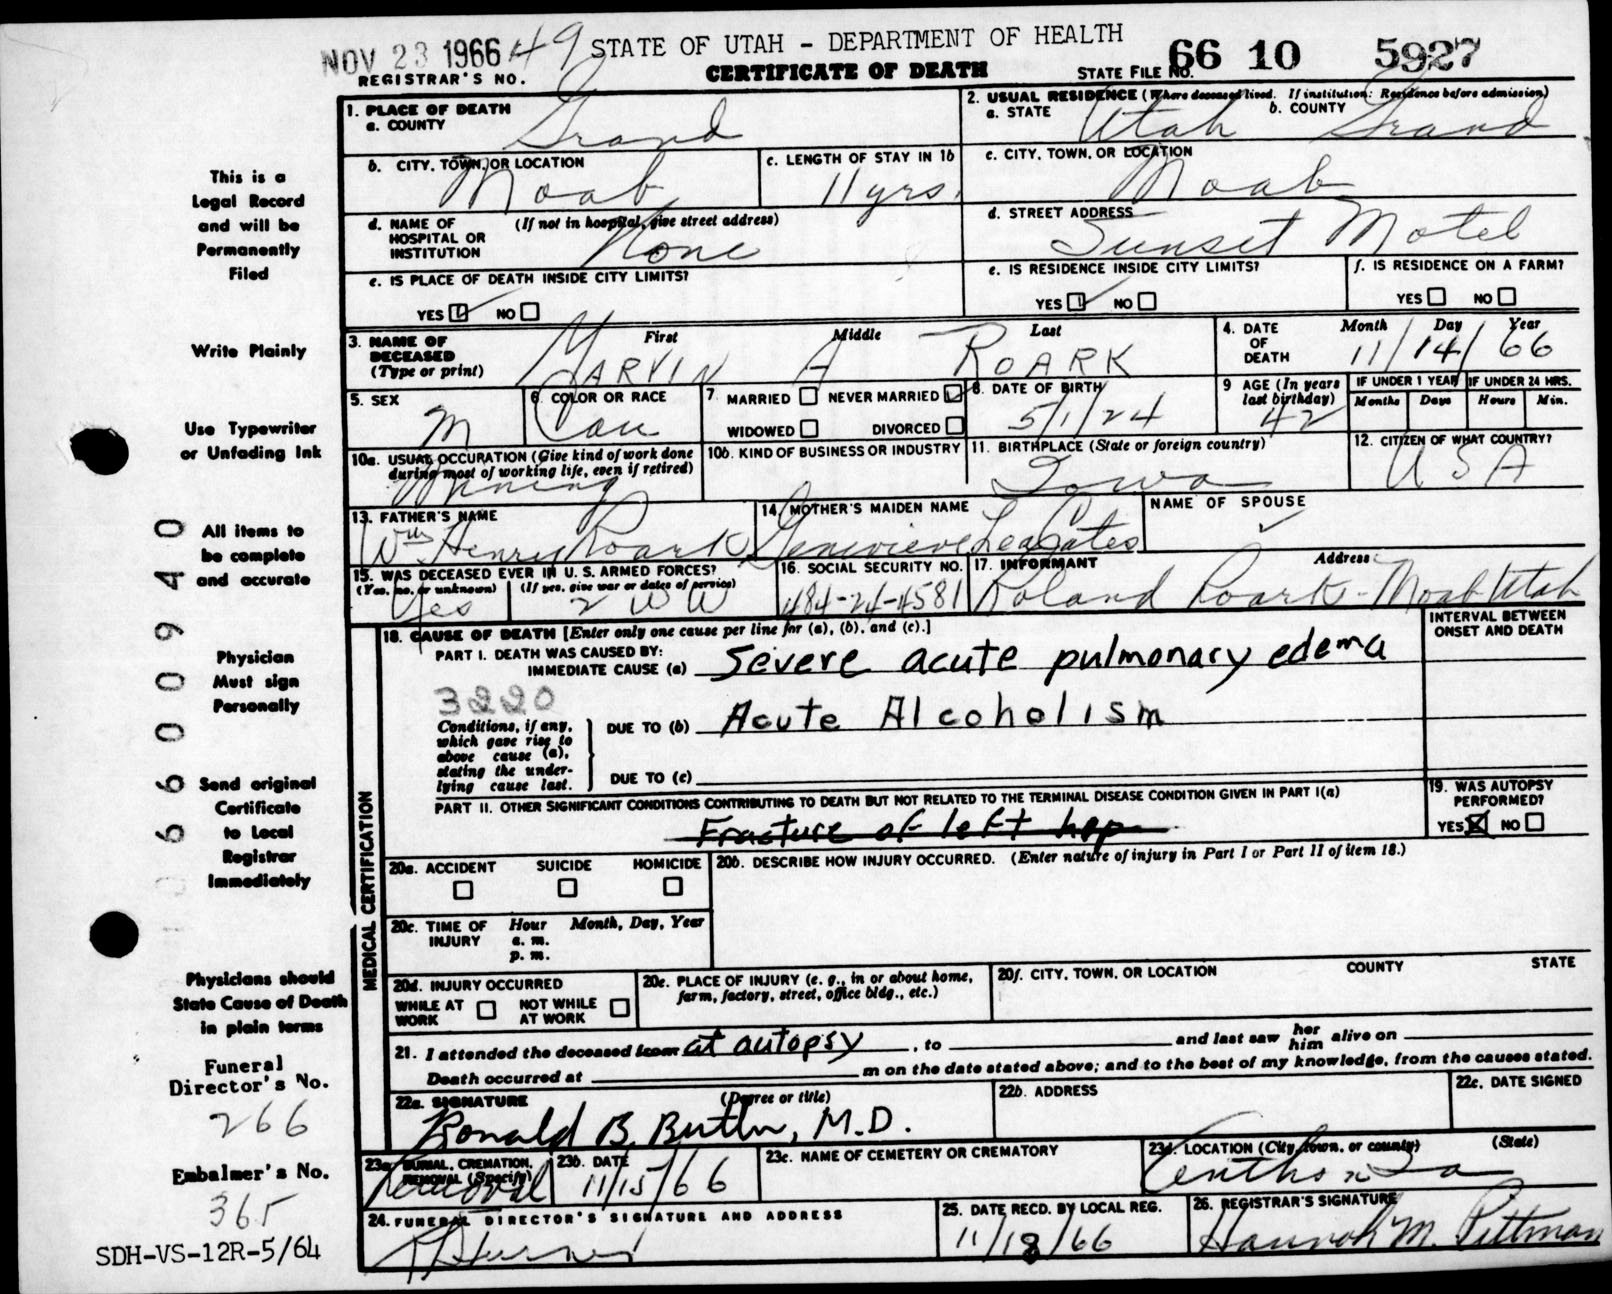 NOV 23 1966 49 STATE OF UTAH - DEPARTMENT OF HEALTH 66 10 5927
REGISTRAR'S NO. CERTIFICATE OF DEATH STATE FILE NO.
1. PLACE OF DEATH
a. COUNTY Grand
2. USUAL RESIDENCE (Where deceased lived. If institution: Residence before admission)
a. STATE Utah b. COUNTY Grand
b. CITY, TOWN, OR LOCATION Moab
c. LENGTH OF STAY IN 1b 11 yrs.
c. CITY, TOWN, OR LOCATION Moab
d. NAME OF HOSPITAL OR INSTITUTION (If not in hospital, give street address) None
d. STREET ADDRESS Sunset Motel
e. IS PLACE OF DEATH INSIDE CITY LIMITS?
YES NO
e. IS RESIDENCE INSIDE CITY LIMITS?
YES NO
f. IS RESIDENCE ON A FARM?
YES NO
3. NAME OF DECEASED (Type or print)
First Middle Last
MARVIN A ROARK
4. DATE OF DEATH
Month Day Year
11/14/66
5. SEX M
6. COLOR OR RACE Cau
7 MARRIED NEVER MARRIED
WIDOWED DIVORCED
8. DATE OF BIRTH 5/1/24
9 AGE (In years last birthday) 42
IF UNDER 1 YEAR IF UNDER 24 HRS.
Months Days Hours Min.
10a. USUAL OCCURATION (Give kind of work done during most of working life, even if retired) Mining
10b. KIND OF BUSINESS OR INDUSTRY
11. BIRTHPLACE (State or foreign country) Iowa
12. CITIZEN OF WHAT COUNTRY? USA
13. FATHER'S NAME Wm Henry Roark
14. MOTHER'S MAIDEN NAME Genevieve
NAME OF SPOUSE
15. WAS DECEASED EVER IN U. S. ARMED FORCES?
(Yes, no, or unknown) (If yes, give war or dates of service)
Yes 2 WW
16. SOCIAL SECURITY NO. 484-24-4581
17. INFORMANT Address
Roland Roark - Moab Utah
18. CAUSE OF DEATH [Enter only one cause per line for (a), (b), and (c).]
INTERVAL BETWEEN ONSET AND DEATH
PART I. DEATH WAS CAUSED BY:
IMMEDIATE CAUSE (a) Severe acute pulmonary edema
3220
Conditions, if any, which gave rise to above cause (a), stating the underlying cause last.
DUE TO (b) Acute Alcoholism
DUE TO (c)
PART II. OTHER SIGNIFICANT CONDITIONS CONTRIBUTING TO DEATH BUT NOT RELATED TO THE TERMINAL DISEASE CONDITION GIVEN IN PART I(a)
Fracture of left hip
19. WAS AUTOPSY PERFORMED?
YES NO
20a. ACCIDENT SUICIDE HOMICIDE
20b. DESCRIBE HOW INJURY OCCURRED. (Enter nature of injury in Part I or Part II of item 18.)
20c. TIME OF INJURY Hour Month, Day, Year
a. m.
p. m.
20d. INJURY OCCURRED
WHILE AT WORK NOT WHILE AT WORK
20e. PLACE OF INJURY (e. g., in or about home, farm, factory, street, office bldg., etc.)
20f. CITY, TOWN, OR LOCATION COUNTY STATE
21. I attended the deceased from at autopsy, to and last saw her him alive on
Death occurred at m on the date stated above; and to the best of my knowledge, from the causes stated.
22a. SIGNATURE (Degree or title)
Ronald B. Butler, M.D.
22b. ADDRESS
22c. DATE SIGNED
23a. BURIAL, CREMATION, REMOVAL (Specify) Removal
23b. DATE 11/15/66
23c. NAME OF CEMETERY OR CREMATORY
23d. LOCATION (City, town, or county) (State)
24. FUNERAL DIRECTOR'S SIGNATURE AND ADDRESS
25. DATE RECD. BY LOCAL REG. 11/18/66
26. REGISTRAR'S SIGNATURE Hannah M. Pittman
MEDICAL CERTIFICATION
This is a
Legal Record
and will be
Permanently
Filed
Write Plainly
Use Typewriter
or Unfading Ink
All items to
be complete
and accurate
Physician
Must sign
Personally
Send original
Certificate
to Local
Registrar
Immediately
Physicians should
State Cause of Death
in plain terms
Funeral
Director's No.
266
Embalmer's No.
365
SDH-VS-12R-5/64